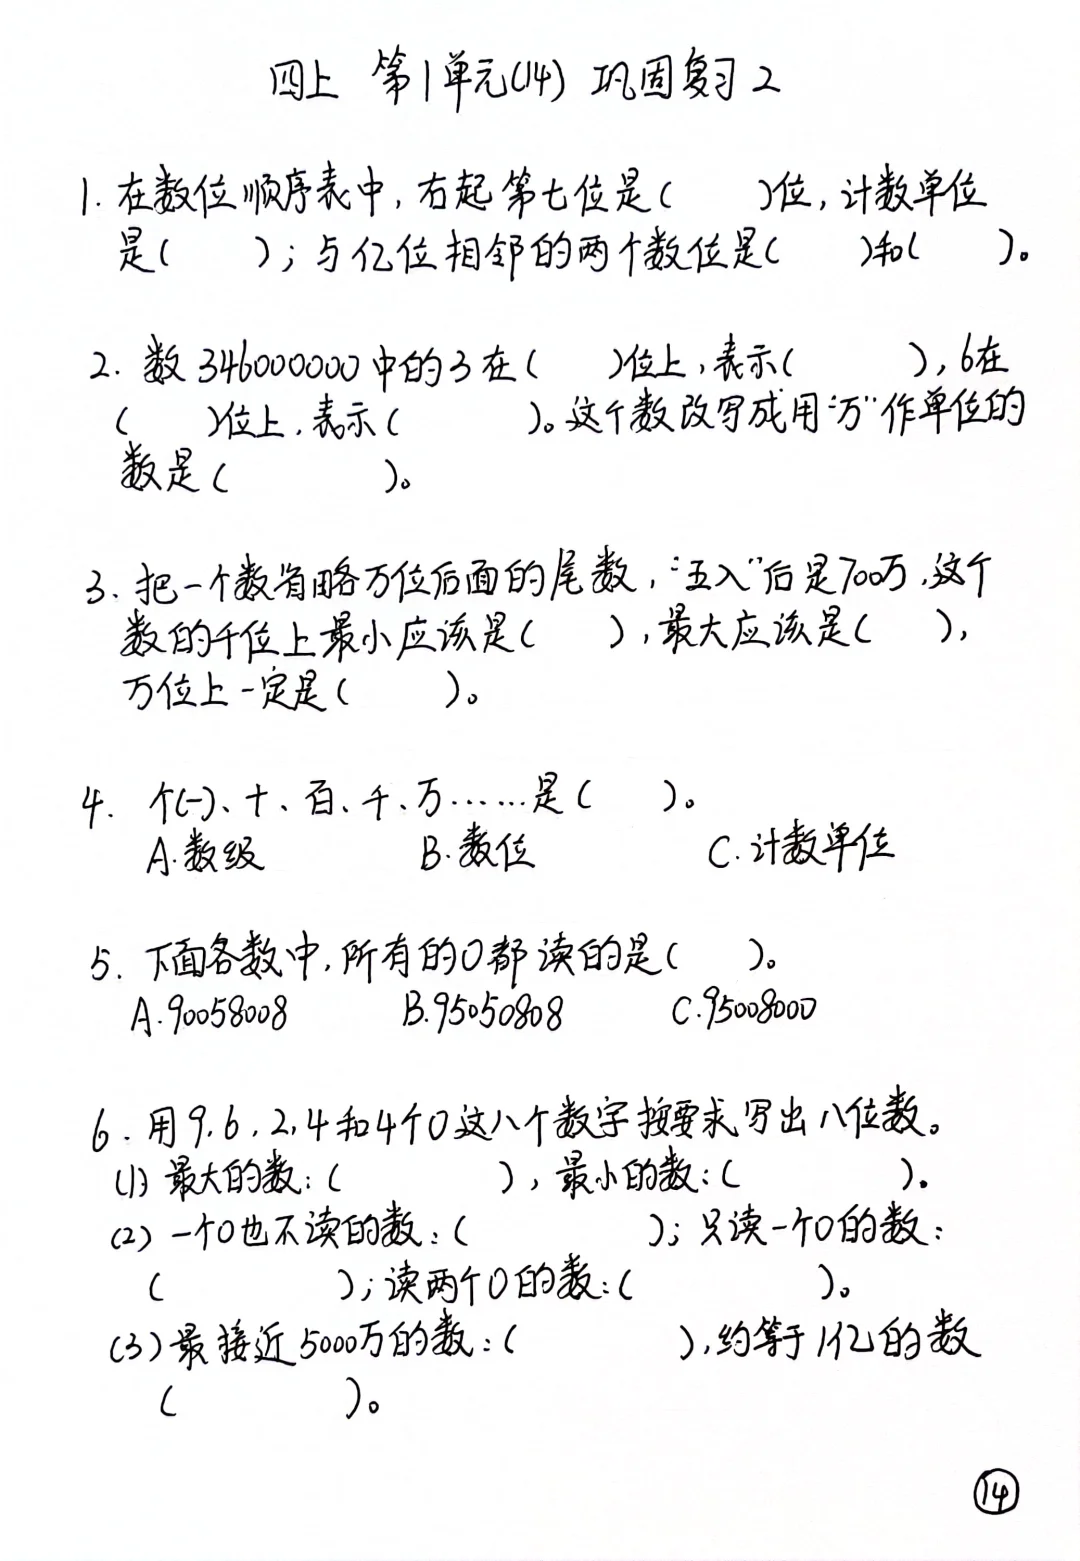 四上 第1单元(14) 巩固复习2
1. 在数位顺序表中,右起第七位是( )位,计数单位
是( );与亿位相邻的两个数位是( )和( )。
2. 数346000000中的3在( )位上,表示( ),6在
( )位上,表示( )。这个数改写成用“万”作单位的
数是( )。
3. 把一个数省略万位后面的尾数,“五入”后是700万,这个
数的千位上最小应该是( ),最大应该是( ),
万位上一定是( )。
4. 个(一)、十、百、千、万……是( )。
A.数级 B.数位 C.计数单位
5. 下面各数中,所有的0都读的是( )。
A.90058008 B.95050808 C.95008000
6. 用9,6,2,4和4个0这八个数字按要求写出八位数。
(1) 最大的数:( ),最小的数:( )。
(2) 一个0也不读的数:( );只读一个0的数:
( );读两个0的数:( )。
(3) 最接近5000万的数:( ),约等于1亿的数
( )。
14